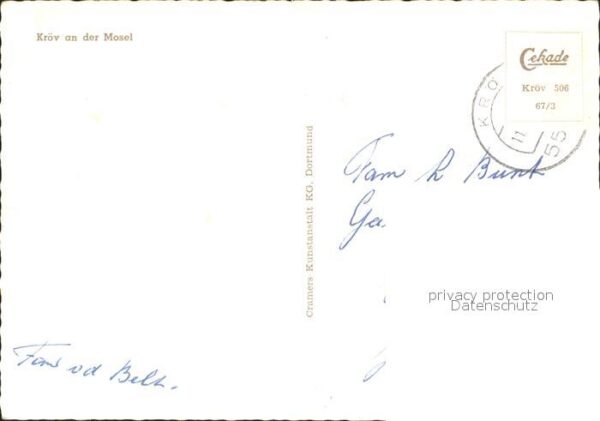 Kröv an der Mosel
Cekade
Kröv 506
67/3
KRÖ
11
55
Cramers Kunstanstalt KG, Dortmund
Fam
Ga
privacy protection
Datenschutz
Fam vd Belt.